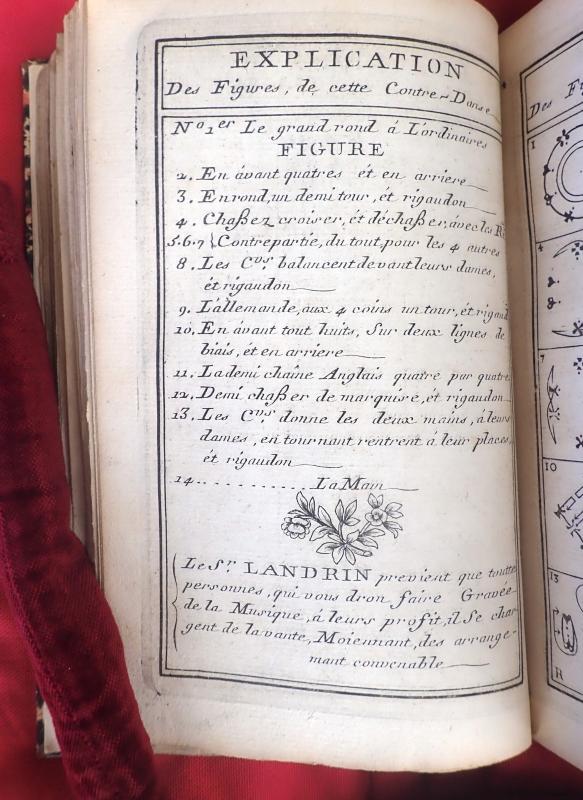 EXPLICATION
Des Figures, de cette Contre-Danse
N.º 1.er Le grand rond á L'ordinaires
FIGURE
2. En ávant quatres ét en arriere
3. En rond, un demi tour, ét rigaudon
4. Chaßez croiser, ét déchaßer, avec les
5.6.7 Contrepartie, du tout, pour les 4 autres
8. Les C.vrs balancent devant leurs dames,
ét rigaudon
9. L'állemande, aux 4 coins un tour, ét rigaud
10. En ávant tout huits, Sur deux lignes de
biais, ét en arriere
11. La demi chaîne Anglais quatre par quatre
12. Demi chaßer de marquiré, et rigaudon
13. Les C.vrs donne les deux mains, á leurs
dames, en tournant rentrent á leur places
ét rigaudon
14. .......... La Main
Le S.r LANDRIN previent que toutte
personnes, qui vous dron faire Gravée
de la Musique, á leurs profit, il Se char-
gent de la vante, Moiennant, des arrange-
mant convenable
Des Fi
1
4
7
10
13
R